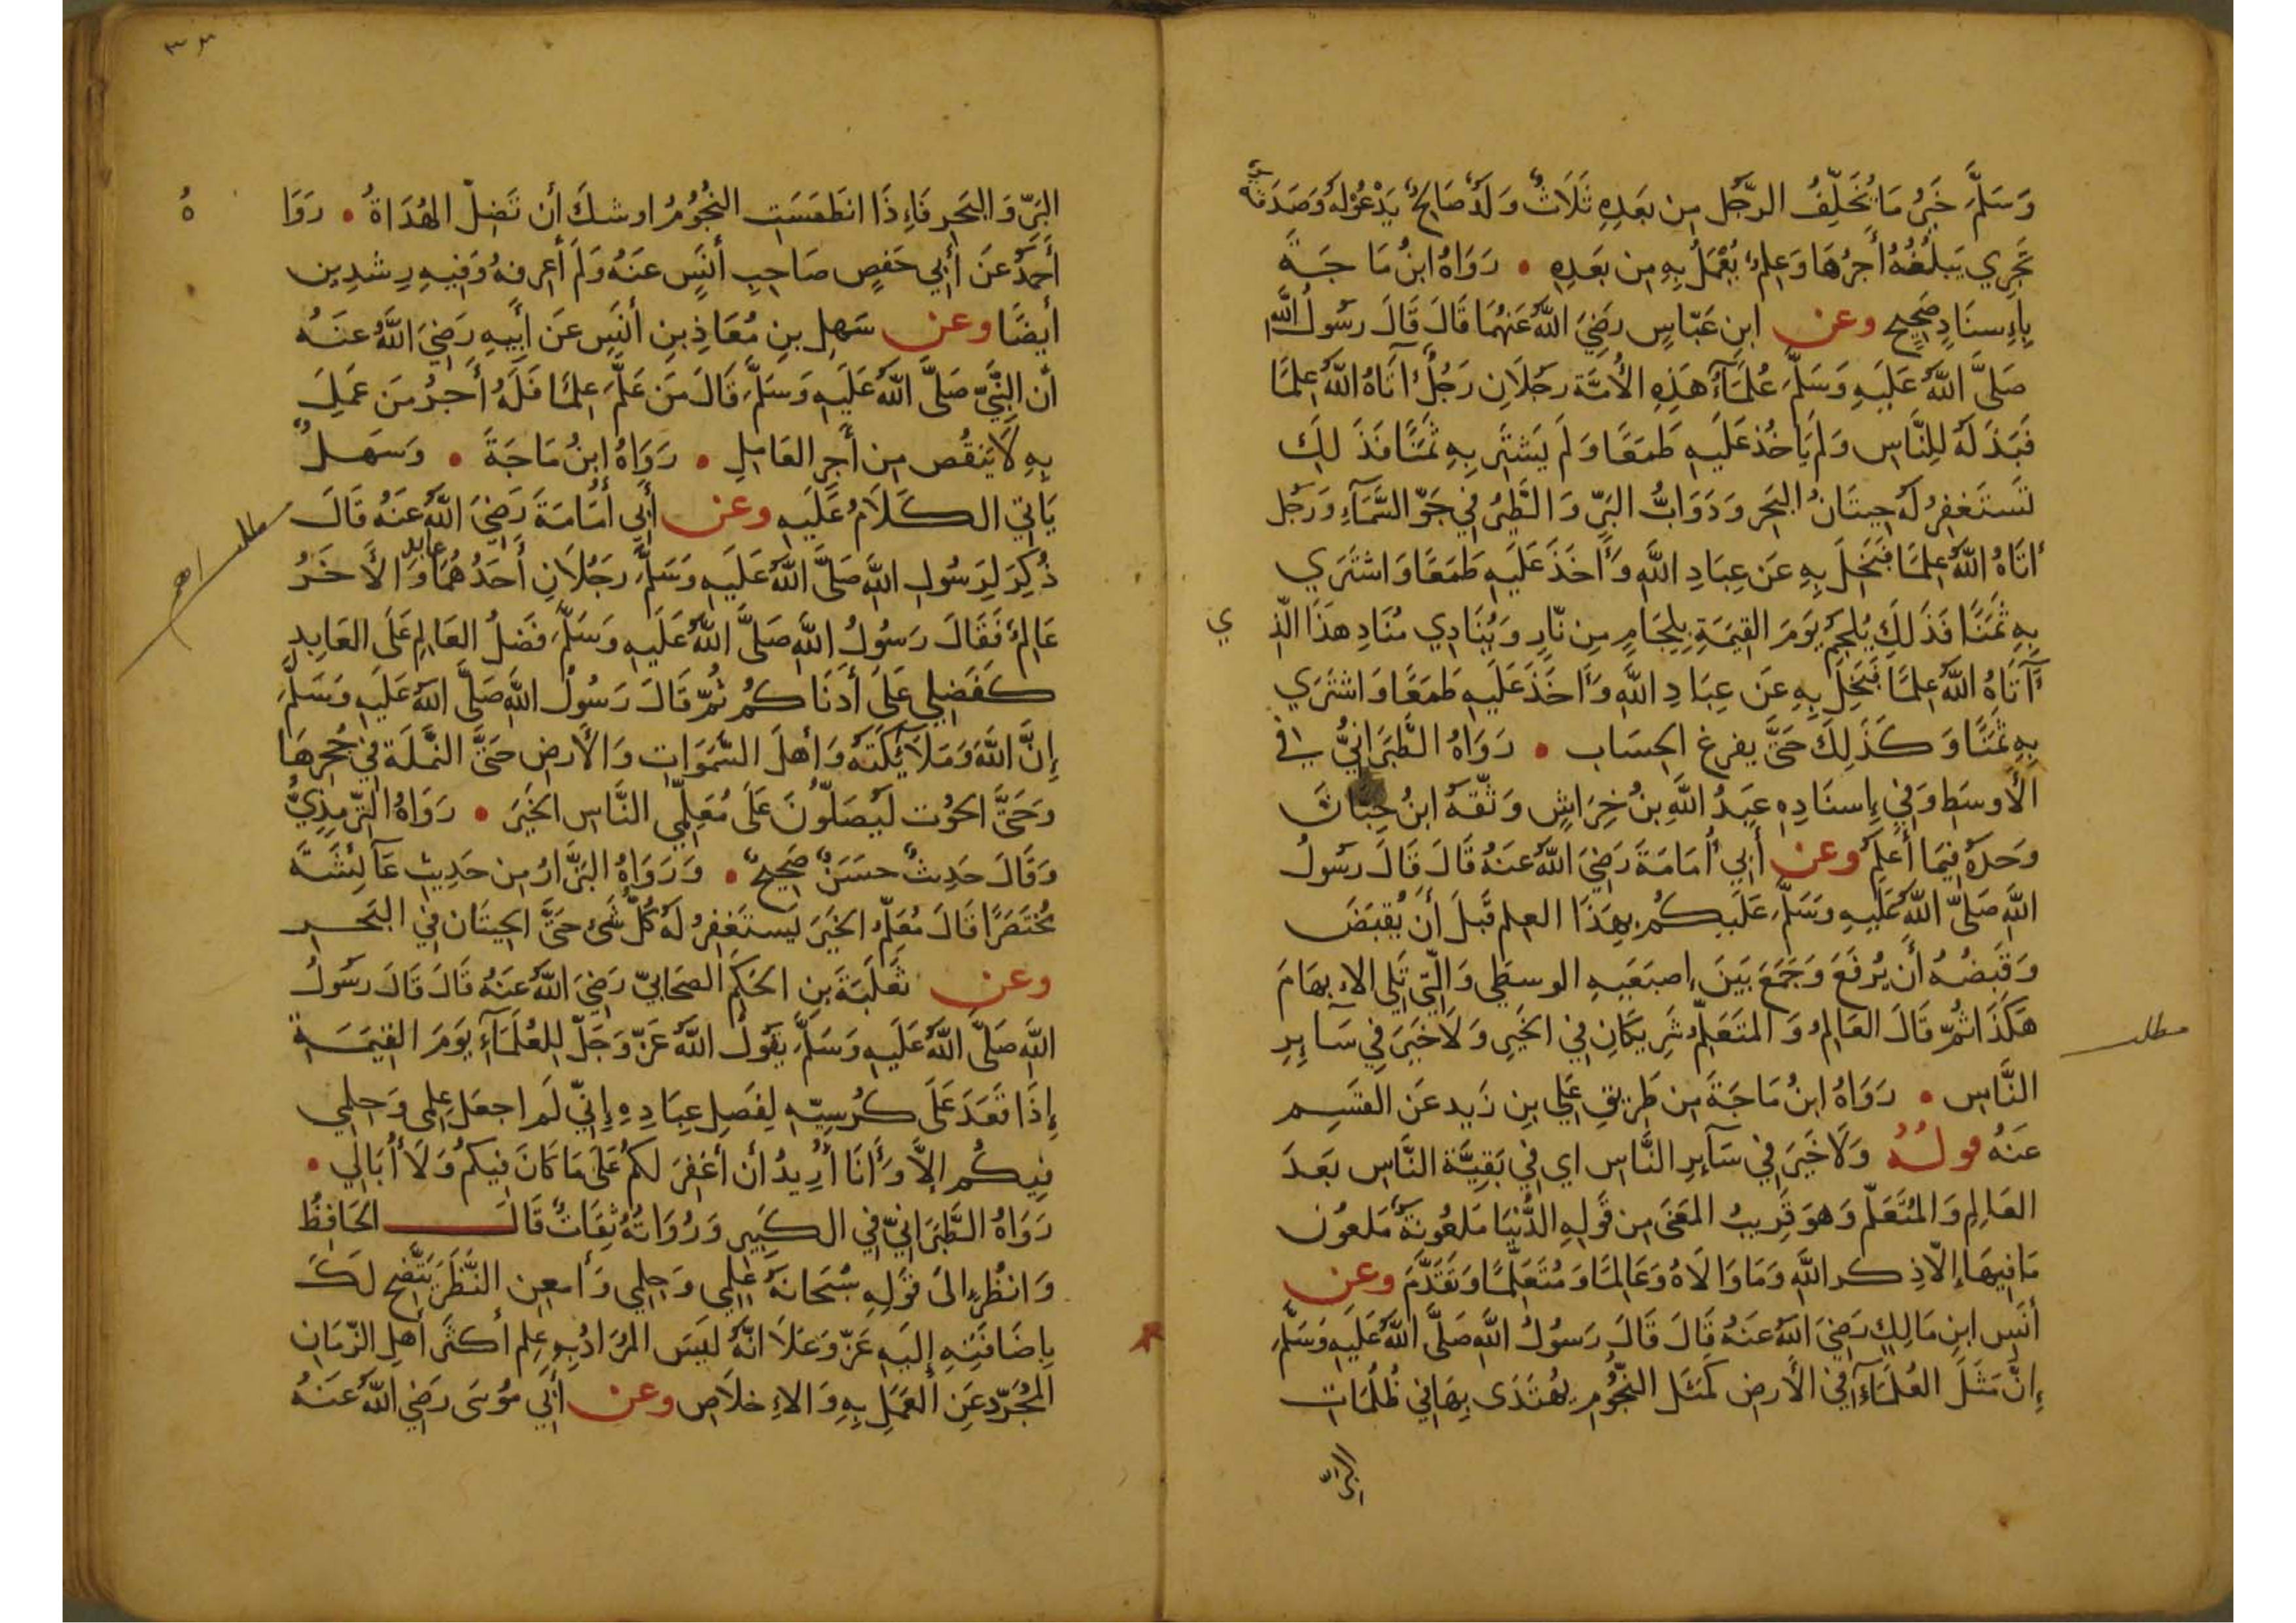 وَسَلَّمَ خَيْرُ مَا يُخَلِّفُ الرَّجُل مِن بَعدِهِ ثَلَاثٌ وَلَدٌ صَالحٌ يَدْعُوْ لَهُ وَصَدَقَةٌ
تَجرِي يَبلُغُهُ أَجرُهَا وَعِلمٌ يُعْمَلُ بِهِ مِن بَعَدِهِ • رَوَاهُ ابنُ مَا جَةَ
بِإِسنَادٍ صَحِيحٍ وعن ابنِ عَبّاسٍ رَضِيَ اللَّهُ عَنهُمَا قَالَ قَالَ رسُولُ اللَّه
صَلَّى اللَّهُ عَلَيهِ وَسَلَّمَ عُلَمَآءُ هَذِهِ الأُمَّة رَجُلَانِ رَجُلٌ آتَاهُ اللَّهُ عِلمًا
فَبَذَلَهُ لِلنَّاسِ وَلَم يَاخُذ عَلَيهِ طَمَعًا وَلَم يَشتَرِ بِهِ ثَمَنًا فَذَلِكَ
تَستَغفِرُ لَهُ حِيتَانُ البَحر وَدَوَابُّ البَرِّ وَالطَّيرُ فِي جَوِّ السَّمَآءِ وَرَجُل
أتَاهُ اللَّهُ عِلمًا فَبَخِلَ بِهِ عَن عِبَادِ اللَّهِ وَأَخَذَ عَلَيهِ طَمَعًا وَاشتَرَي
بِهِ ثَمَنًا فَذَلِكَ يُلجَمُ يَومَ القِيَمَةِ بِلِجَامٍ مِن نَّارٍ وَيُنَادِي مُنَادٍ هذَا الّذِ ي
آتَاهُ اللَّهُ عِلمًا فَبَخِلَ بِهِ عَن عِبَادِ اللَّهِ وَأَخَذَ عَلَيهِ طَمَعًا وَاشتَرَي
بِهِ ثَمَنًا وَكَذَلِكَ حَتَّى يفرغ الحِسَاب • رَوَاهُ الطَّبَرَانِيُّ في
الأَوسَطِ وَفِي إِسنَادِهِ عَبدُ اللَّهِ بنُ خِرَاشٍ وَثّقَهُ ابنُ حِبَّانَ
وَحدَهُ فِيمَا أَعلَم وعن أَبِي أُمَامَةَ رَضِيَ اللَّهُ عَنهُ قَالَ قَالَ رسُولُ
اللَّهِ صَلَّى اللَّهُ عَلَيهِ وَسَلَّمَ عَلَيكُم بِهَذَا العِلم قَبلَ أَن يُقبَضَ
وَقَبضُهُ أَن يُرفَعَ وَجَمَعَ بَينَ إِصبَعَيهِ الوسطَى وَالّتِي تَلِي الإبهَامَ
هَكَذَا ثُمَّ قَالَ العَالِمُ وَالمتَعَلِّمُ شَرِيكَانِ فِي الخَيرِ وَلَاخَيرَ فِي سَآيِرِ
مطلب
النَّاسِ • رَوَاهُ ابنُ مَاجَةَ مِن طَرِيقِ عَلِي بنِ زَيد عَن القَسِم
عَنهُ قولُهُ وَلَا خَيرَ فِي سَآيرِ النَّاس اي فِي بَقِيَّة النَّاسِ بَعدَ
العَالِمِ وَالمُتَعَلّم وَهوَ قَرِيبُ المعنَى مِن قَولِهِ الدُّنيَا مَلعُونَةٌ مَلعُون
مَافِيهَا إِلاّ ذِكر اللَّهِ وَمَا وَالَاهُ وَعَالِمًا وَمُتَعَلِّمًا وَتَقَدَّمَ وعن
أَنَسِ ابنِ مَالِكٍ رَضِيَ اللَّهُ عَنهُ قَالَ قَالَ رَسُولُ اللَّهِ صَلَّى اللَّهُ عَلَيهِ وَسَلَّمَ
إِنَّ مَثَلَ العُلَمَآءِ فِي الأَرض كَمَثَلِ النجُوم يُهتَدَى بِهَا فِي ظُلُمَات
البرّ
٣٣
البَرِّ وَالبَحرِ فَإِذَا انطَمَسَتِ النجُومُ اوشكَ أَن تَضِلّ الهُدَاةُ • رَوَا هُ
أَحمَدُ عَن أَبِي حَفصٍ صَاحِبِ أَنَسٍ عنَهُ وَلَم أَعرفهُ وَفِيهِ رِشدِين
أَيضًا وعن سَهلِ بنِ مُعَاذِ بنِ أَنَسٍ عَن أَبِيهِ رَضِيَ اللَّهُ عَنهُ
أن النَّبِيّ صَلَّى اللَّهُ عَلَيهِ وَسَلَّمَ قَالَ مَن عَلَّمَ عِلمًا فَلَهُ أَجرُ مَن عَمِلَ
بِهِ لَا يَنقُص مِن أَجرِ العَامِلِ • رَوَاهُ ابنُ مَاجَةَ • وَسَهلٌ
يَاتِي الكَلَامُ عَلَيهِ وعن أَبِي أُمَامَةَ رَضِيَ اللَّهُ عَنهُ قَالَ
مطلب
ذُكِرَ لِرَسُولِ اللَّهِ صَلَّى اللَّهُ عَلَيهِ وَسَلَّمَ رَجُلَانِ أَحَدُهُمَا عابد وَالأَخَرُ
عَالِمٌ فَقَالَ رَسُولُ اللَّهِ صَلَّى اللَّهُ عَلَيهِ وَسَلَّمَ فَضلُ العَالِمِ عَلَى العَابِدِ
كَفَضلِي عَلَى أَدنَاكُم ثُمّ قَالَ رَسُولُ اللَّهِ صَلَّى اللَّهُ عَلَيهِ وَسَلَّمَ
إِنَّ اللَّهَ وَمَلَآئِكَتَهُ وَأَهلَ السَّمَوَاتِ وَالأَرضِ حَتَّى النَّملَةَ فِي جُحرِهَا
وَحَتَّى الحُوت لَيُصَلّونَ عَلَى مُعَلِّمِي النَّاسِ الخَيرَ • رَوَاهُ التِّرمِذِيُّ
وَقَالَ حَدِيثٌ حسَنٌ صَحِيحٌ • وَرَوَاهُ البَزَّارُ مِن حَدِيثِ عَآئِشَةَ
مُختَصَرًا قَالَ مُعَلِّمُ الخَيرَ يَستَغفِرُ لَهُ كُلُّ شَئ حَتَّى الحِيتَان فِي البَحرِ
وعن ثَعلَبَةَ بنِ الحَكَم الصَحَابِيّ رَضِيَ اللَّهُ عَنهُ قَالَ قَالَ رسُولُ
اللَّهِ صَلَّى اللَّهُ عَلَيهِ وَسَلَّمَ يقُولُ اللَّهُ عَزّ وَجَلّ لِلعُلَمَآءِ يَومَ القِيَمَةِ
إِذَا قَعَدَ عَلَى كُرسِيّهِ لِفَصلِ عِبَادِهِ إِنِّي لَم اجعَل عِلمِى وَحِلمِي
فِيكُم إلاَّ وَأَنَا أُرِيدُ أن أَغفِرَ لكُم عَلَى مَا كَانَ فِيكُم وَلَا أُبَالِي •
رَوَاهُ الطَّبَرَانِيّ فِي الكَبِير وَرُوَاتُهُ ثِقَاتٌ قَالَ الحَافِظُ
وَانظُر إلَى قَولِهِ سُبحَانَهُ عِلمِي وَحِلمِي وَأَمعِن النَّظَرَ يَتَّضِح لَكَ
بِإضَافَتِهِ إِلَيهِ عَزّ وَعَلَا انَّهُ لَيسَ المُرَادُ بِهِ عِلم أَكثَر أَهلِ الزّمَانِ
المُجَرّدِ عَنِ العَمَلِ بِهِ وَالإِخلَاص وعن أَبِي مُوسَى رَضِيَ اللَّهُ عَنهُ